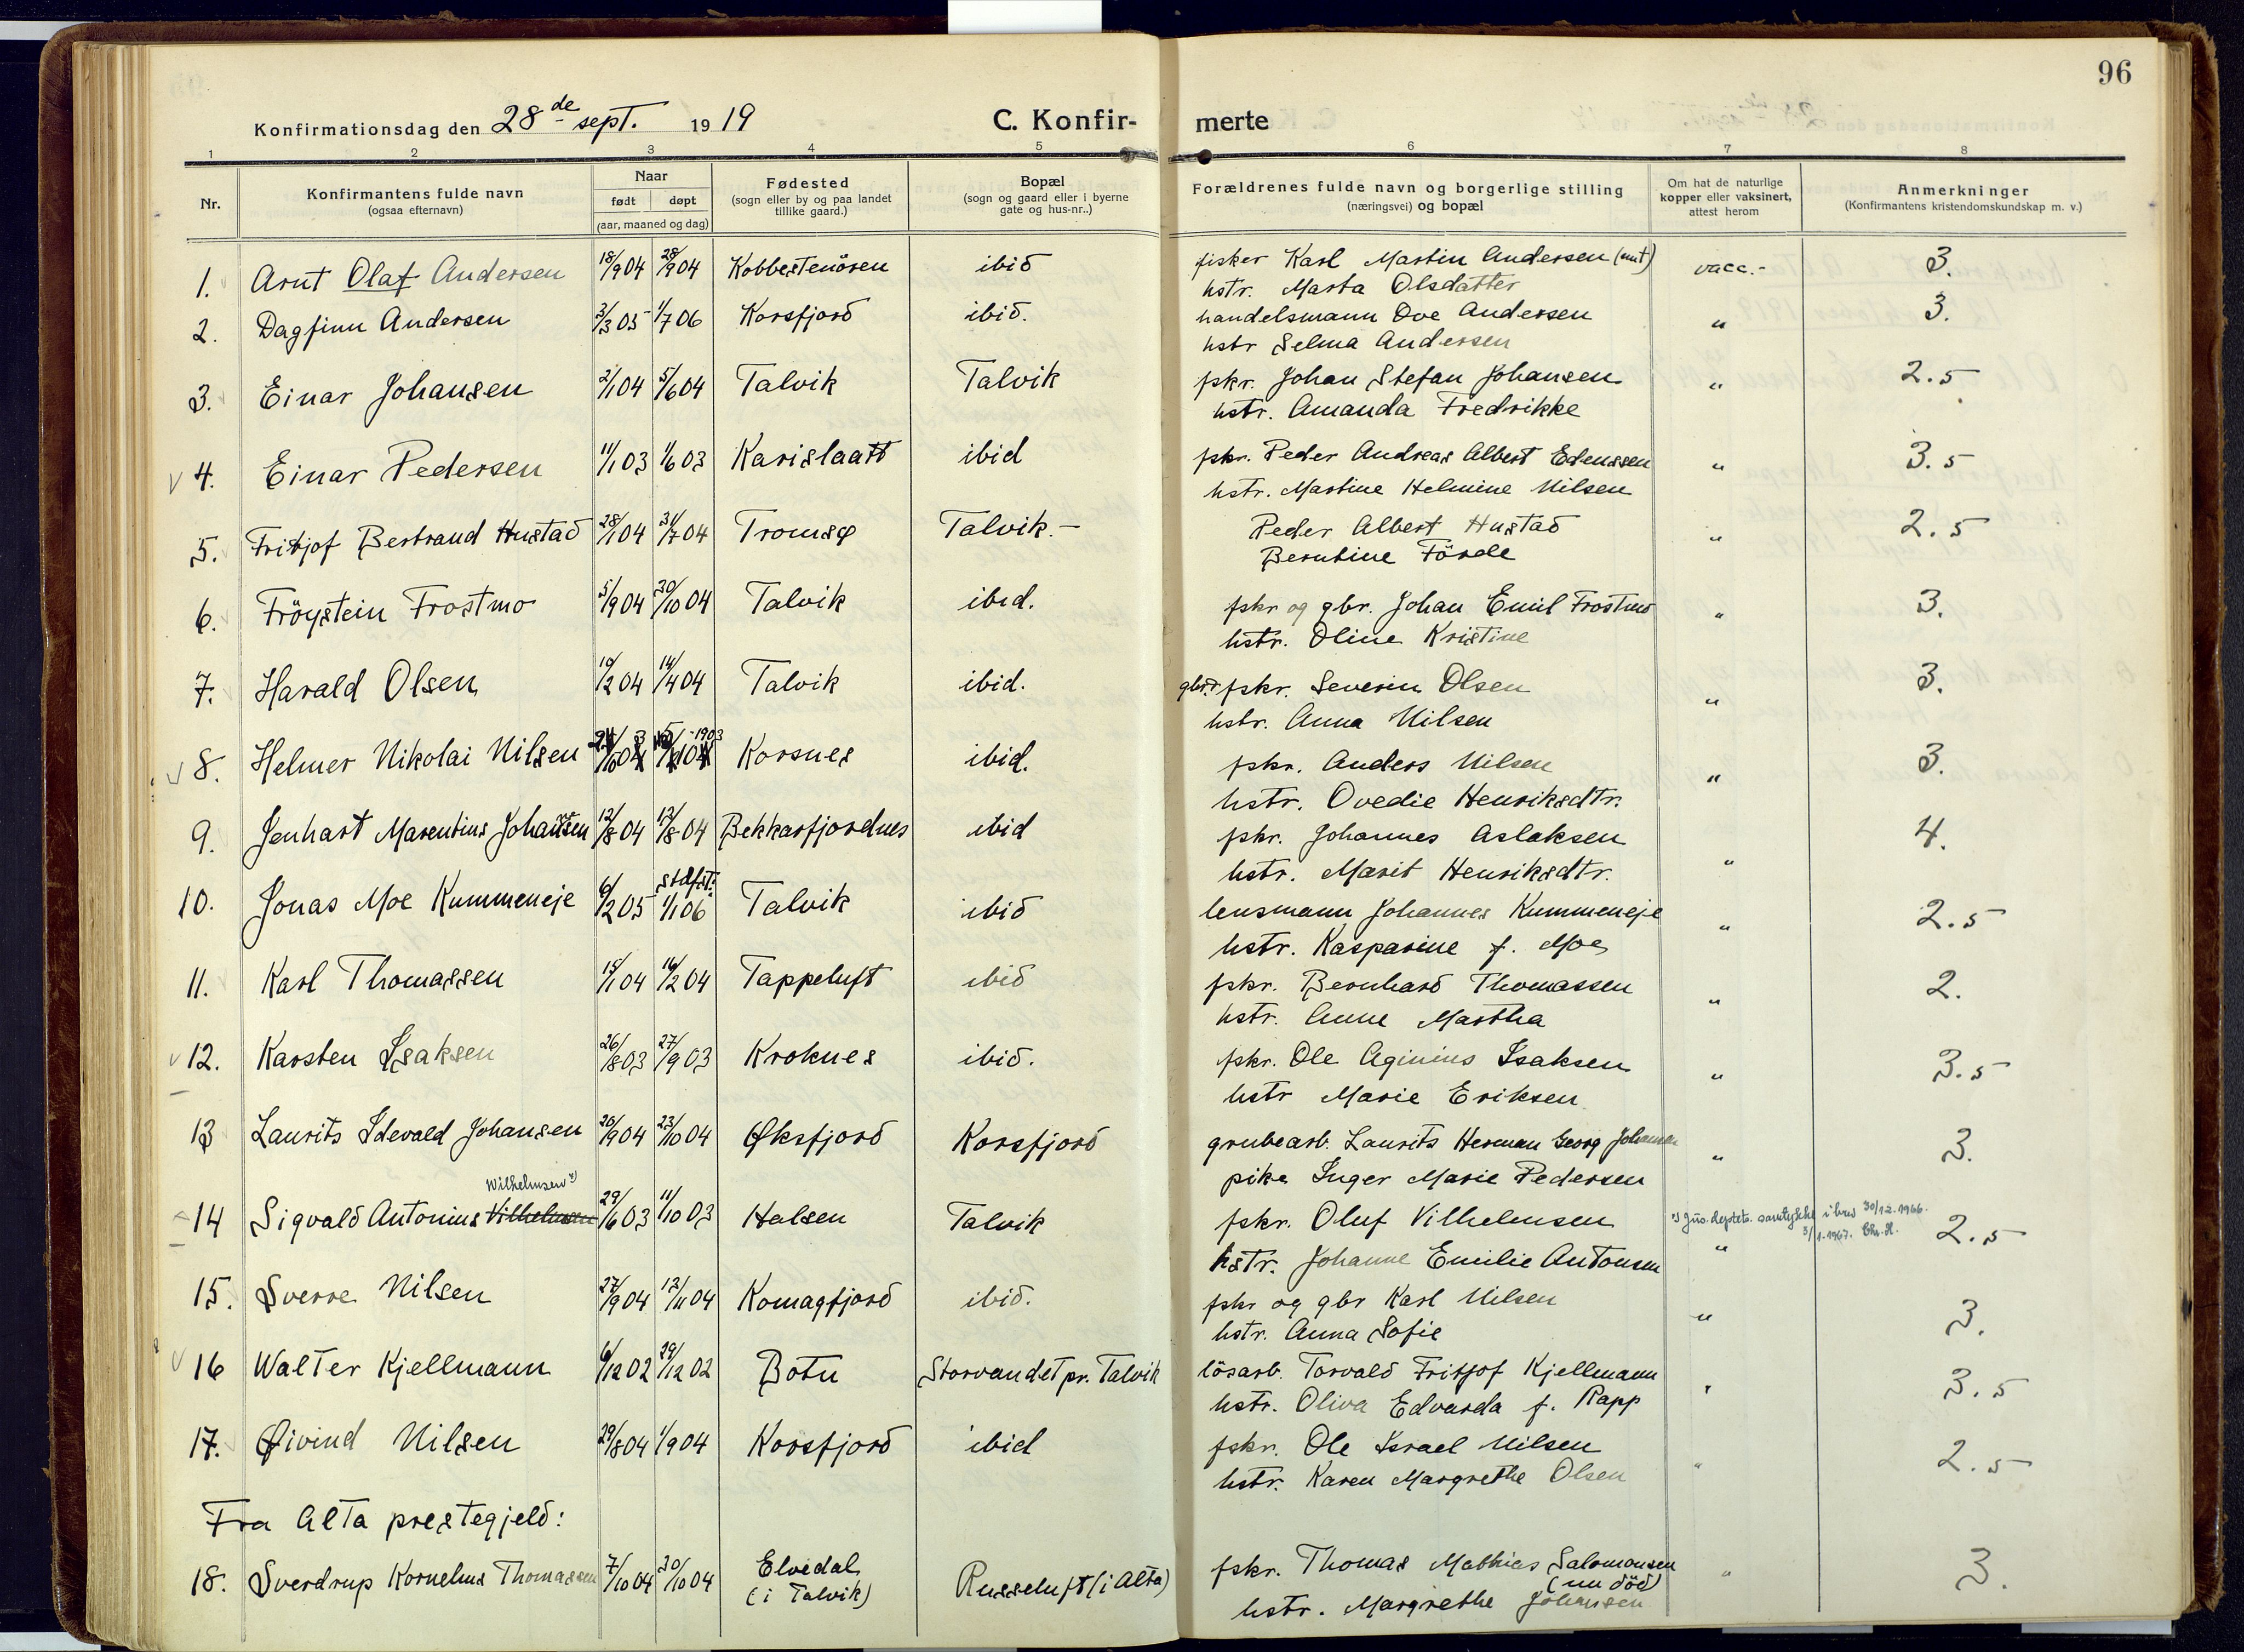 96
Konfirmationsdag den 28de sept. 1919 C. Konfir- merte
1 2 3 4 5 6 7 8
Nr. Konfirmantens fulde navn (ogsaa efternavn) Naar født døpt (aar, maaned og dag) Fødested (sogn eller by og paa landet tillike gaard.) Bopæl (sogn og gaard eller i byerne gate og hus-nr..) Forældrenes fulde navn og borgerlige stilling (næringsvei) og bopæl Om hat de naturlige kopper eller vaksinert, attest herom Anmerkninger (Konfirmantens kristendomskundskap m. v.)
1. Arnt Olaf Andersen 18/9 04 28/9 04 Kobbestenören ibid fisker Karl Martin Andersen vacc.- 3.
hstr. Marta Olsdatter
2. Dagfinn Andersen 3/3 05 1/7 06 Korsfjord ibid. handelsmann Ove Andersen " 3.
hstr Selma Andersen
3. Einar Johansen 2/1 04 5/6 04 Talvik Talvik fskr. Johan Stefan Johansen " 2.5
hstr. Amanda Fredrikke
4. Einar Pedersen 11/1 03 1/6 03 Karislaatt ibid fskr. Peder Andreas Albert Edenssen " 3.5
hstr. Martine Helmine Nilsen
5. Fritjof Bertrand Hustad 28/1 04 31/7 04 Tromsø Talvik.- Peder Albert Hustad " 2.5
Berntine Förde
6. Fröystein Frostmo 5/9 04 30/10 04 Talvik ibid. fskr og gbr. Johan Emil Frostmo " 3.
hstr. Oline Kristine
7. Harald Olsen 10/2 04 14/4 04 Talvik ibid. gbr. fskr. Severin Olsen " 3.
hstr. Anna Nilsen
8. Helmer Nikolai Nilsen 1903 Korsnes ibid. fskr. Anders Nilsen " 3.
hstr. Ovedie Henriksdtr.
9. Jenhart Marentius Johansen 12/8 04 12/8 04 Bekkarfjordnes ibid fskr. Johannes Aslaksen " 4.
hstr. Marit Henriksdtr.
10. Jonas Moe Kummeneje 6/2 05 stdfst. 1/1 06 Talvik ibid lensmann Johannes Kummeneje " 2.5
hstr. Kasparine f. Moe
11. Karl Thomassen 15/1 04 16/2 04 Tappeluft ibid fskr. Bernhard Thomassen " 2.
hstr. Anne Martha
12. Karsten Isaksen 26/8 03 27/9 03 Kroknes ibid. fskr. Ole Aginius Isaksen " 3.5
hstr Marie Eriksen
13 Laurits Idevald Johansen 20/9 04 23/10 04 Øksfjord Korsfjord grubearb. Laurits Herman Georg Johansen " 3.
pike Inger Marie Pedersen
Wilhelmsen *)
14 Sigvald Antonius Vilhelmsen 29/6 03 11/10 03 Halsen Talvik fskr. Oluf Vilhelmsen *) Jus.deptets. samtykke i brev 30/12.1966. 2.5
5/1-1967. Chr. H.
hstr. Johanne Emilie Antonsen "
15. Sverre Nilsen 27/9 04 12/11 04 Komagfjord ibid. fskr og gbr Karl Nilsen " 3.
hstr. Anna Sofie
16 Walter Kjellmann 6/12 02 29/12 02 Botn Storvandet pr. Talvik lösarb. Torvald Fritjof Kjellmann " 3.5
hstr. Oliva Edvarda f. Rapp
17. Øivind Nilsen 29/8 04 1/9 04 Korsfjord ibid fskr. Ole Israel Nilsen " 2.5
hstr. Karen Margrethe Olsen
Fra Alta prestegjeld:
18. Sverdrup Kornelius Thomassen 7/10 04 30/10 04 Elvedal (i Talvik) Russeluft (i Alta) fskr. Thomas Mathias Salomonsen (nu död) " 3.
hstr. Margrethe Johansen